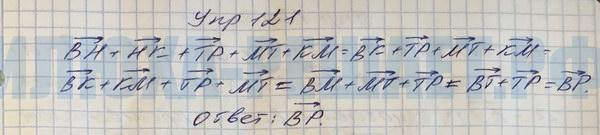 Упр 121
B⃗H⃗ + H⃗K⃗ + T⃗P⃗ + M⃗T⃗ + K⃗M⃗ = B⃗K⃗ + T⃗P⃗ + M⃗T⃗ + K⃗M⃗ =
B⃗K⃗ + K⃗M⃗ + T⃗P⃗ + M⃗T⃗ = B⃗M⃗ + M⃗T⃗ + T⃗P⃗ = B⃗T⃗ + T⃗P⃗ = B⃗P⃗.
Ответ: B⃗P⃗.